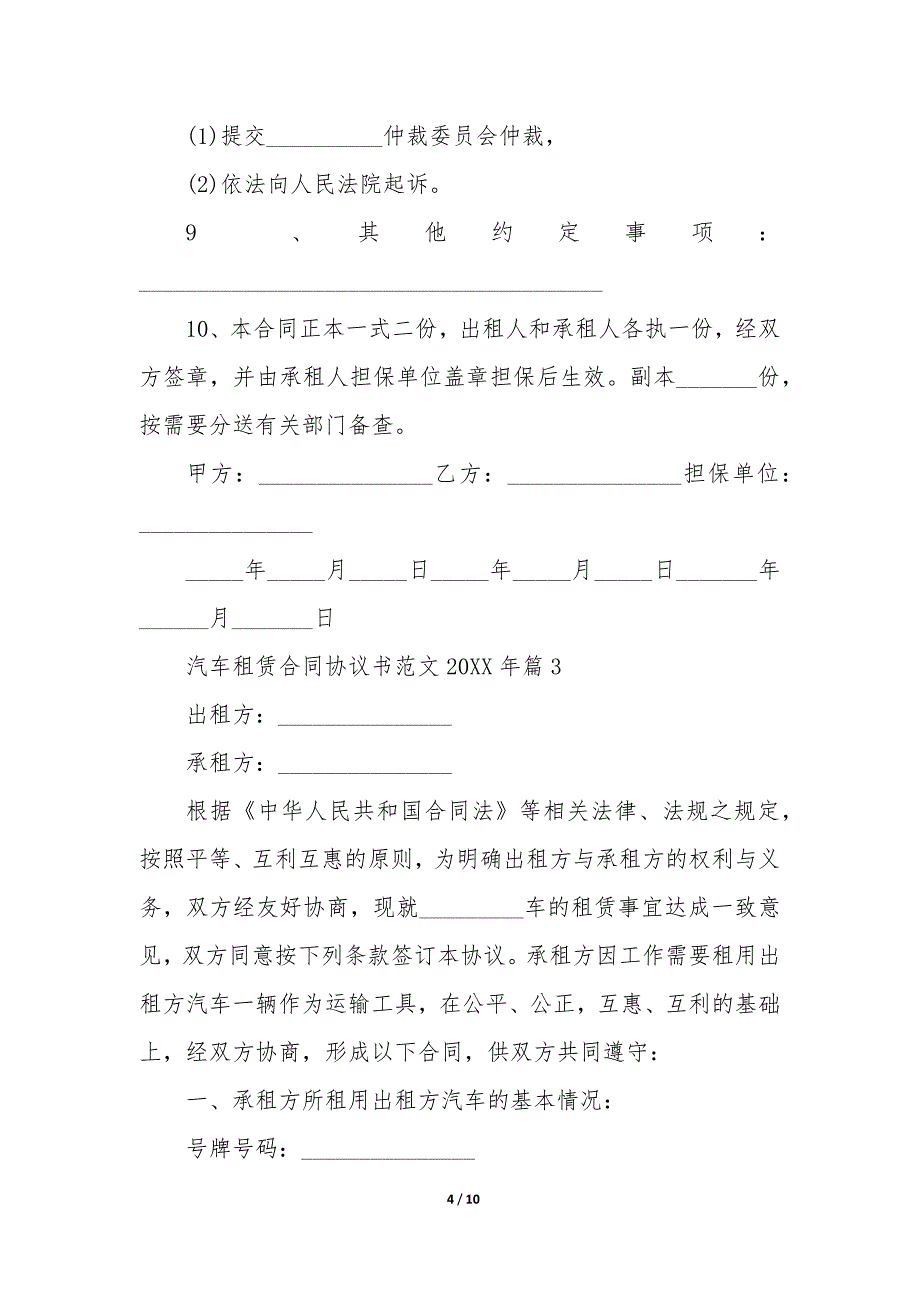 (1)提交__________仲裁委员会仲裁，
(2)依法向人民法院起诉。
9、其他约定事项：
________________________________________
10、本合同正本一式二份，出租人和承租人各执一份，经双
方签章，并由承租人担保单位盖章担保后生效。副本_______份，
按需要分送有关部门备查。
甲方：_______________乙方：_______________担保单位：
_______________
_____年_____月_____日_____年_____月_____日_______年
______月_______日
汽车租赁合同协议书范文 20XX 年篇 3
出租方：_______________
承租方：_______________
根据《中华人民共和国合同法》等相关法律、法规之规定，
按照平等、互利互惠的原则，为明确出租方与承租方的权利与义
务，双方经友好协商，现就_________车的租赁事宜达成一致意
见，双方同意按下列条款签订本协议。承租方因工作需要租用出
租方汽车一辆作为运输工具，在公平、公正，互惠、互利的基础
上，经双方协商，形成以下合同，供双方共同遵守：
一、承租方所租用出租方汽车的基本情况：
号牌号码：_______________
4 / 10